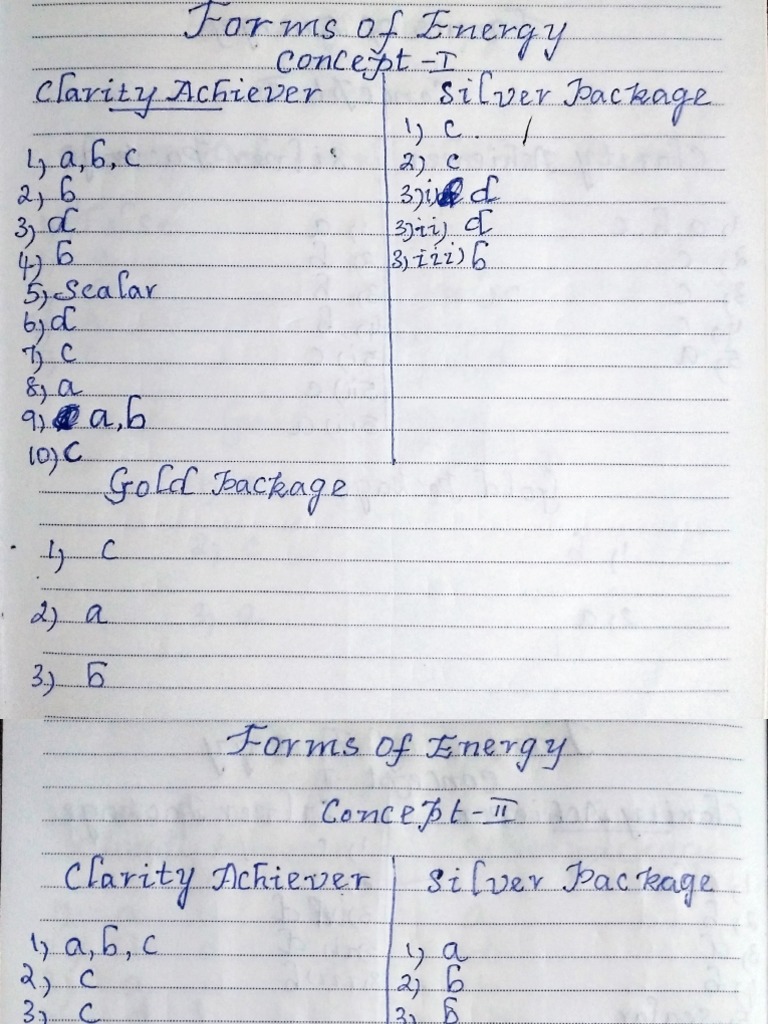 Forms of Energy
Concept-I
Clarity Achiever
1) a,b,c
2) b
3) d
4) b
5) Scalar
6) d
7) c
8) a
9) a,b
10) c
Silver Package
1) c.
2) c
3)i) d
3)ii) d
3)iii) b
Gold Package
1) c
2) a
3) b
Forms of Energy
Concept-II
Clarity Achiever
1) a,b,c
2) c
3) c
Silver Package
1) a
2) b
3) b